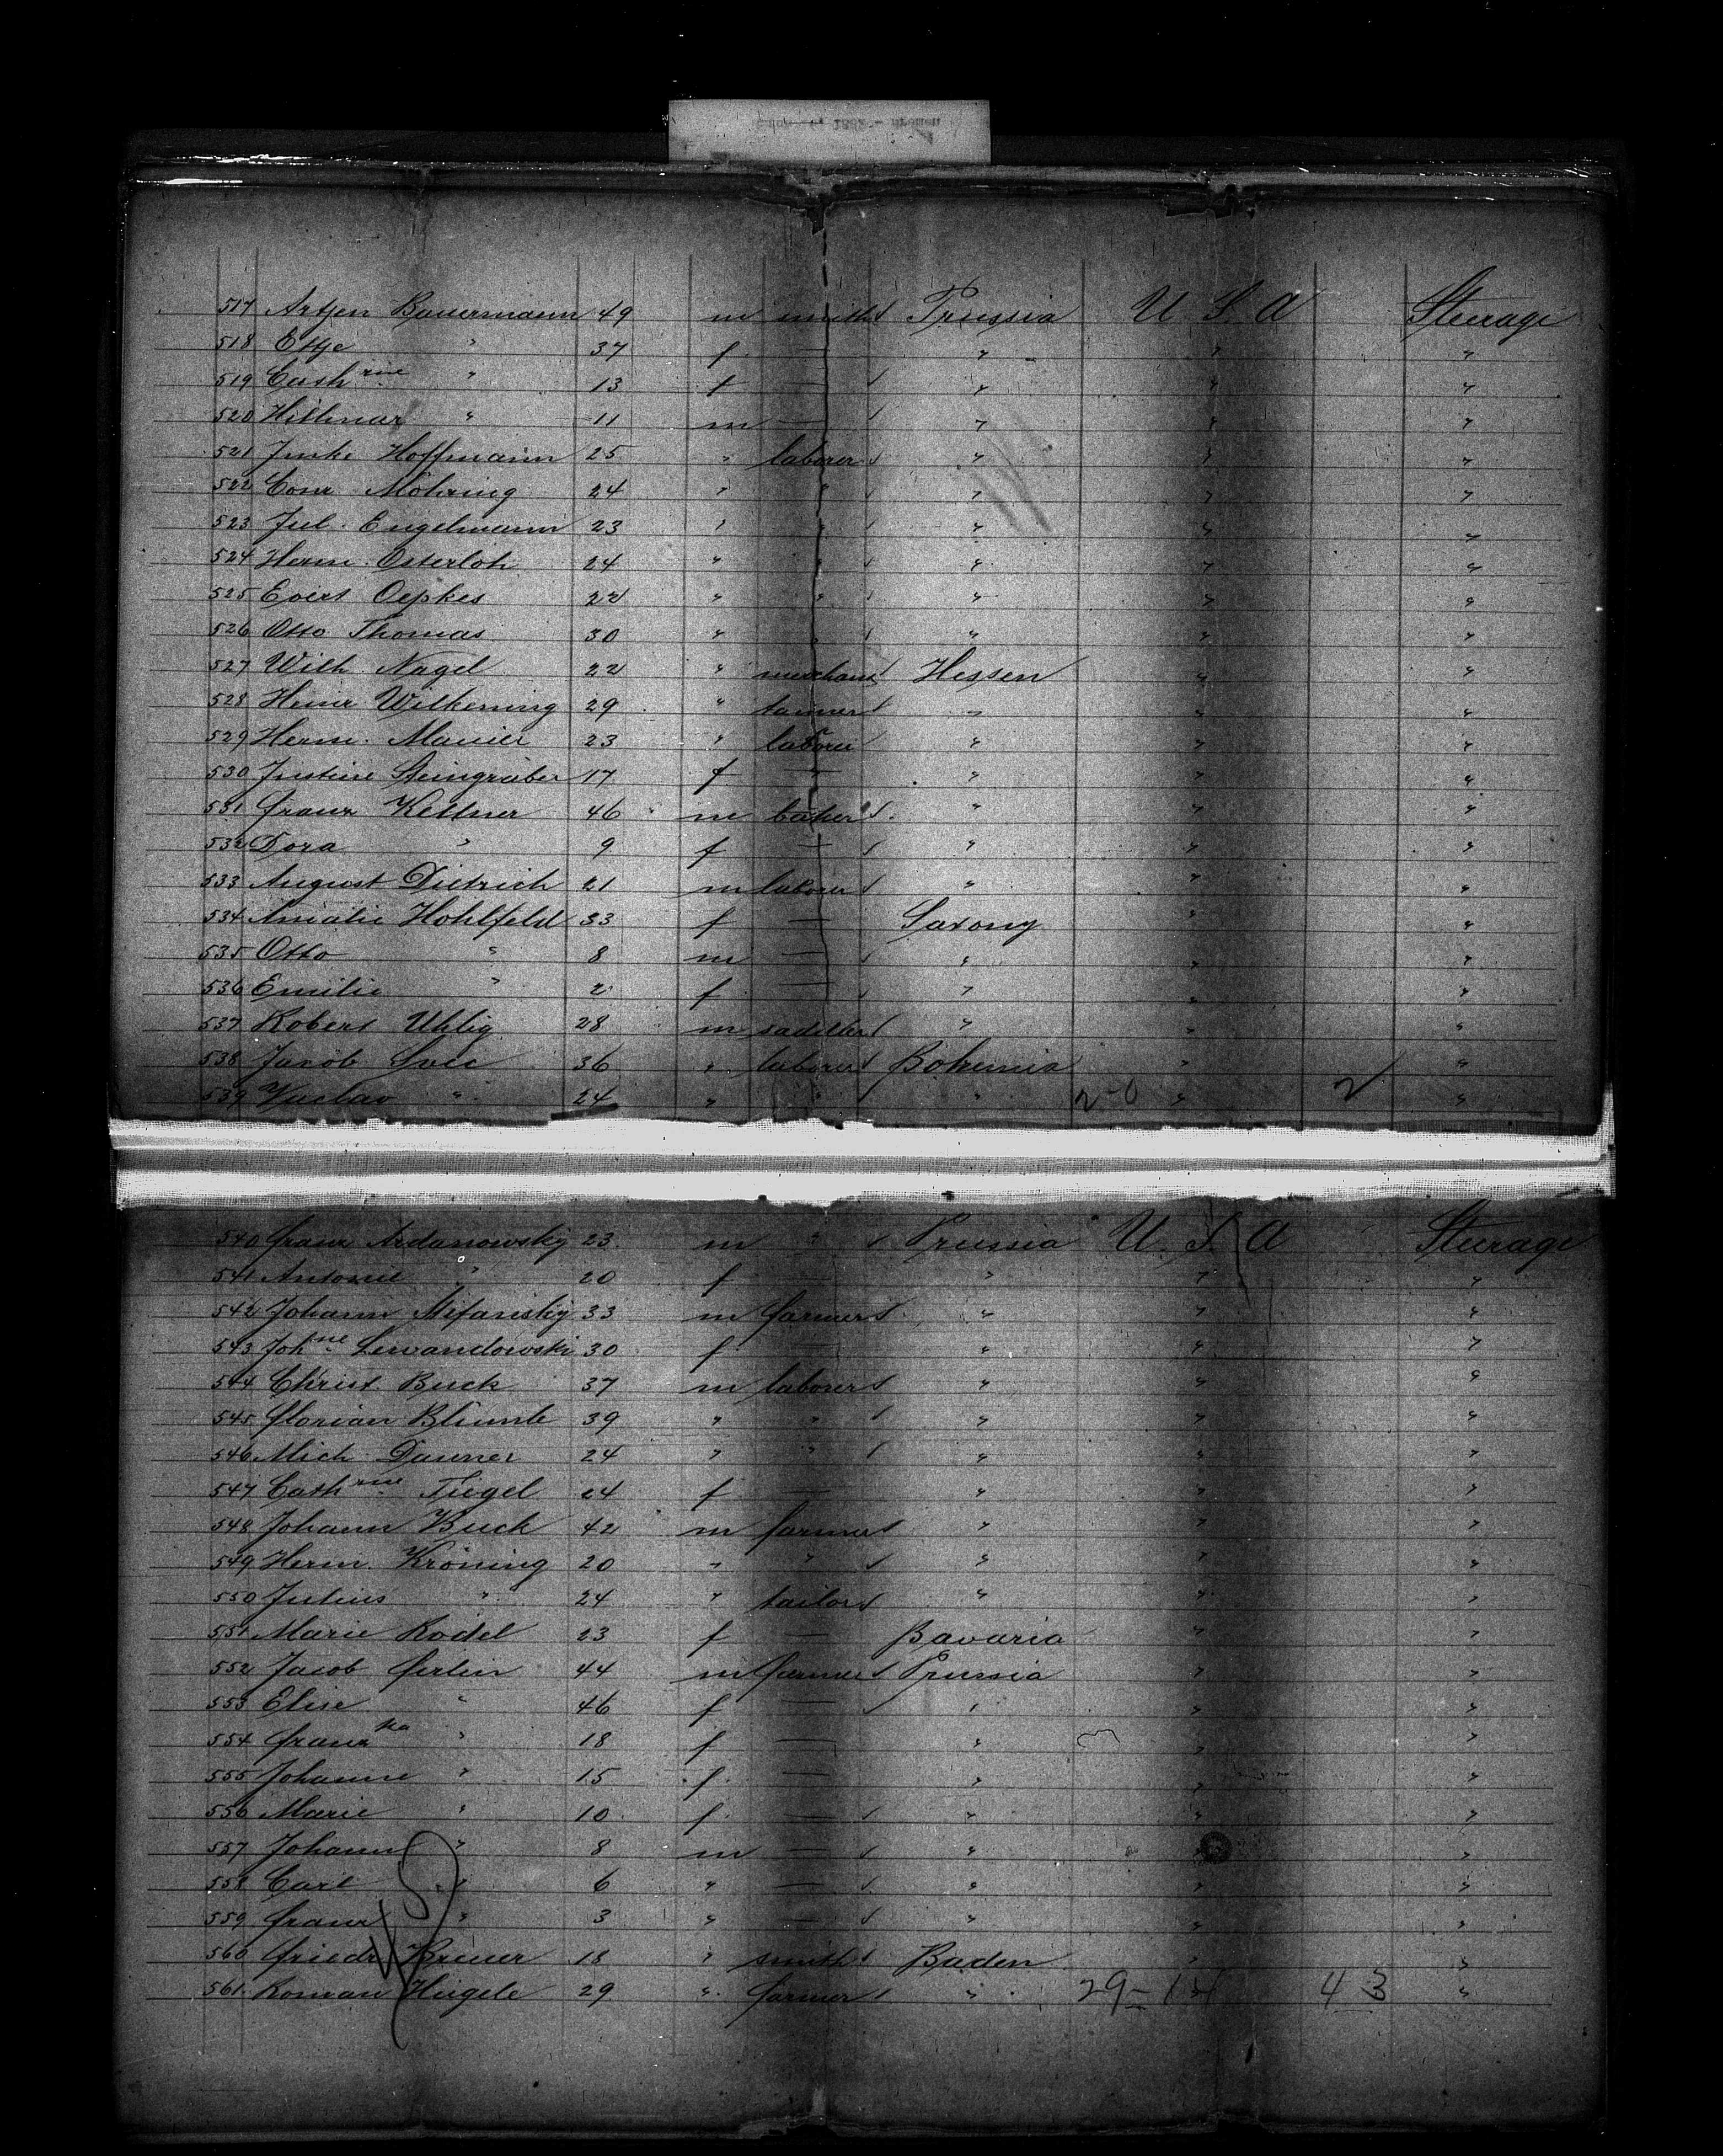 517 Artjen Bauermann 49 m smith Prussia U. S. A Steerage
518 Ettje " 37 f — " " "
519 Cathrine " 13 f — " " "
520 Hillmar " 11 m — " " "
521 Hoffmann 25 " laborer " " "
522 Conr. Möhring 24 " " " " "
523 Jul. Engelmann 23 " " " " "
524 Herm. Osterloh 24 " " " " "
525 Evert Oepkes 22 " " " " "
526 Otto Thomas 30 " " " " "
527 Wilh. Nagel 22 " merchant Hessen " "
528 Heinr Wilkening 29 " tanner " " "
529 Herm. Maurer 23 " laborer " " "
530 Justine Steingräber 17 f " " " "
531 Franz Kellner 46 m baker " " "
532 Dora " 9 f — " " "
533 August Dietrich 21 m laborer " " "
534 Amalie Hohlfeld 33 f — Saxony " "
535 Otto " 8 m — " " "
536 Emilie " 2 f — " " "
537 Robert Uhlig 28 m saddler " " "
538 Jacob Svec 36 " laborer Bohemia " "
539 Vaclav " 24 " " " 2-0 " 2 "
540 Franz Ardanowsky 23 m " Prussia U. S. A Steerage
541 Antonie " 20 f — " " "
542 Johann 33 m farmer " " "
543 Johne Lewandowski 30 f — " " "
544 Christ. Buck 37 m laborer " " "
545 Florian 39 " " " " "
546 Mich. Dauner 24 " " " " "
547 Cathrine Tiegel 24 f — " " "
548 Johann Buck 42 m farmer " " "
549 Herm. Kröning 20 " " " " "
550 Julius " 24 " tailor " " "
551 Marie Rödel 23 f — Bavaria " "
552 Jacob Ferlin 44 m farmer Prussia " "
553 Elise " 46 f — " " "
554 Franzka " 18 f — " " "
555 Johanne " 15 f — " " "
556 Marie " 10 f — " " "
557 Johann " 8 m — " " "
558 Carl " 6 " — " " "
559 Franz " 3 " — " " "
560 Friedr Breuer 18 " smith Baden " "
561 Roman Hügele 29 " farmer " 29-14 " 43 "